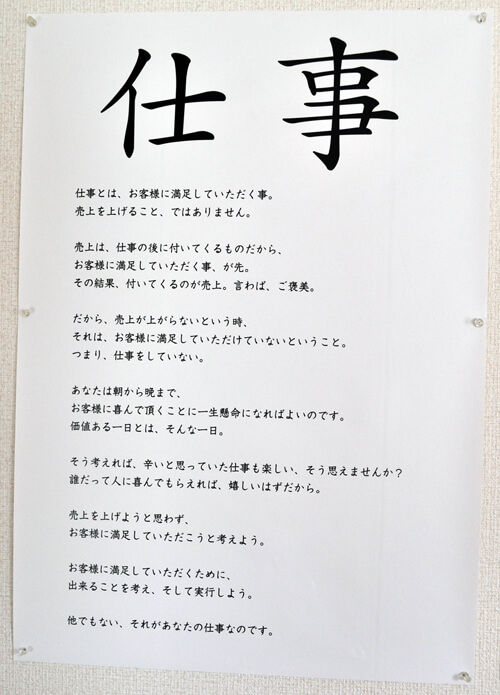 仕事
仕事とは、お客様に満足していただく事。
売上を上げること、ではありません。
売上は、仕事の後に付いてくるものだから、
お客様に満足していただく事、が先。
その結果、付いてくるのが売上。言わば、ご褒美。
だから、売上が上がらないという時、
それは、お客様に満足していただけていないということ。
つまり、仕事をしていない。
あなたは朝から晩まで、
お客様に喜んで頂くことに一生懸命になればよいのです。
価値ある一日とは、そんな一日。
そう考えれば、辛いと思っていた仕事も楽しい、そう思えませんか？
誰だって人に喜んでもらえれば、嬉しいはずだから。
売上を上げようと思わず、
お客様に満足していただこうと考えよう。
お客様に満足していただくために、
出来ることを考え、そして実行しよう。
他でもない、それがあなたの仕事なのです。